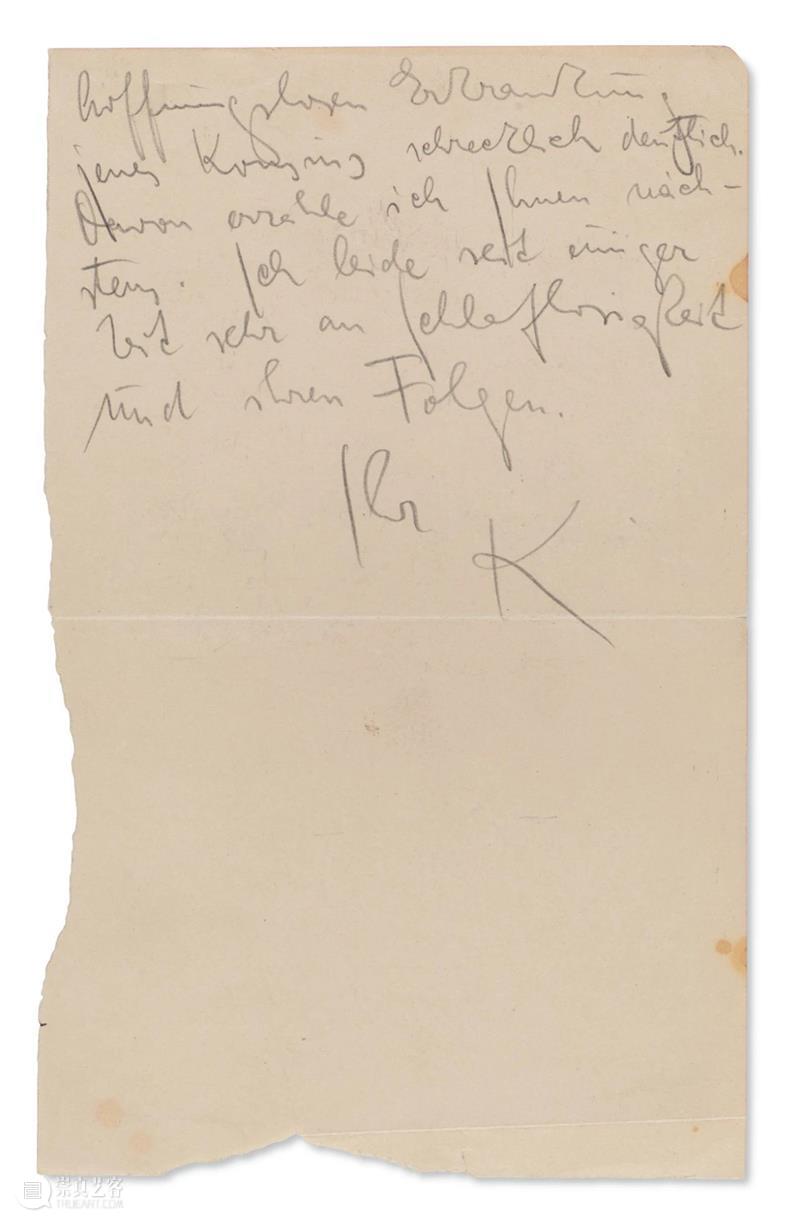 hoffnungslosen Erkrankung
jenes Kousins schrecklich deutlich.
Davon erzähle ich Ihnen näch-
stens. Ich leide seit einiger
Zeit sehr an Schlaflosigkeit
und ihren Folgen.
Ihr
K
崇真艺客
TRUEART.COM